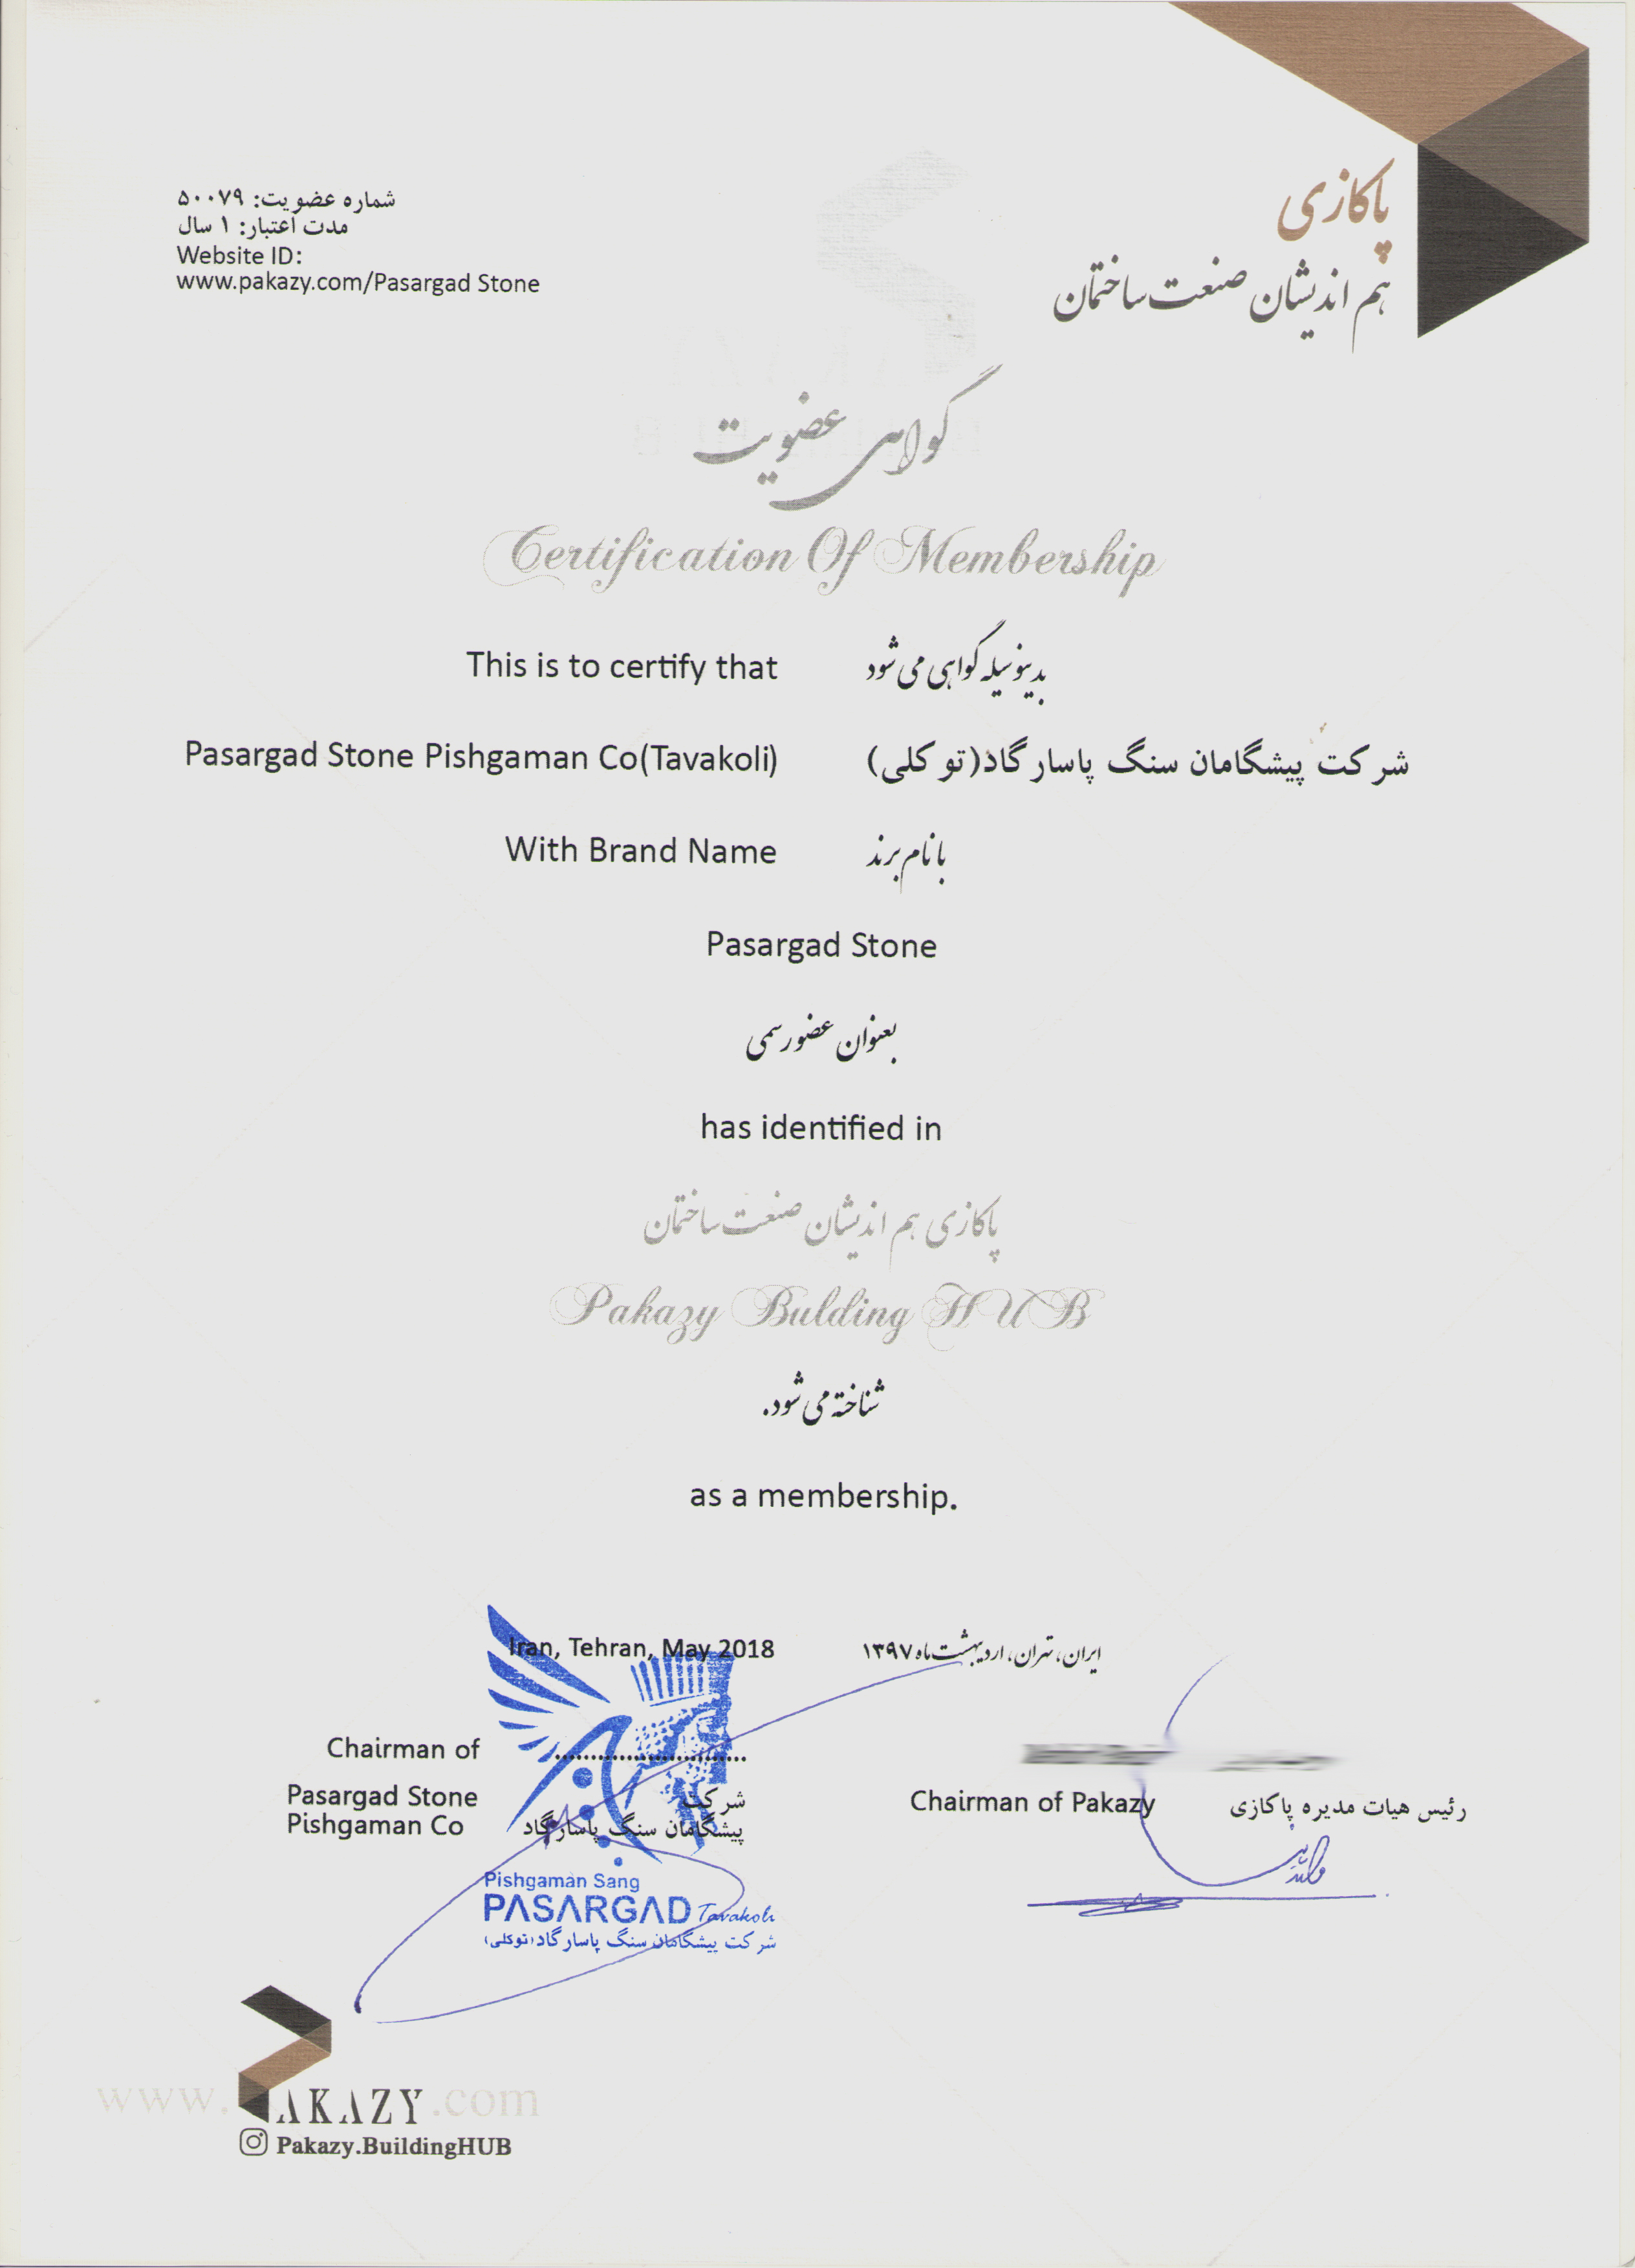 پاکازی
هم اندیشان صنعت ساختمان
شماره عضویت: ۵۰۰۷۹
مدت اعتبار: ۱ سال
Website ID:
www.pakazy.com/Pasargad Stone
گواهی عضویت
Certification Of Membership
This is to certify that بدینوسیله گواهی می شود
Pasargad Stone Pishgaman Co(Tavakoli) شرکت پیشگامان سنگ پاسارگاد(توکلی)
With Brand Name با نام برند
Pasargad Stone
بعنوان عضو رسمی
has identified in
پاکازی هم اندیشان صنعت ساختمان
Pakazy Bulding HUB
شناخته می شود.
as a membership.
Iran, Tehran, May 2018 ایران، تهران، اردیبهشت ماه ۱۳۹۷
Chairman of ............................
Pasargad Stone شرکت
Pishgaman Co پیشگامان سنگ پاسارگاد
Chairman of Pakazy رئیس هیات مدیره پاکازی
Pishgaman Sang
PASARGAD Tavakoli
شرکت پیشگامان سنگ پاسارگاد(توکلی)
www.PAKAZY.com
Pakazy.BuildingHUB